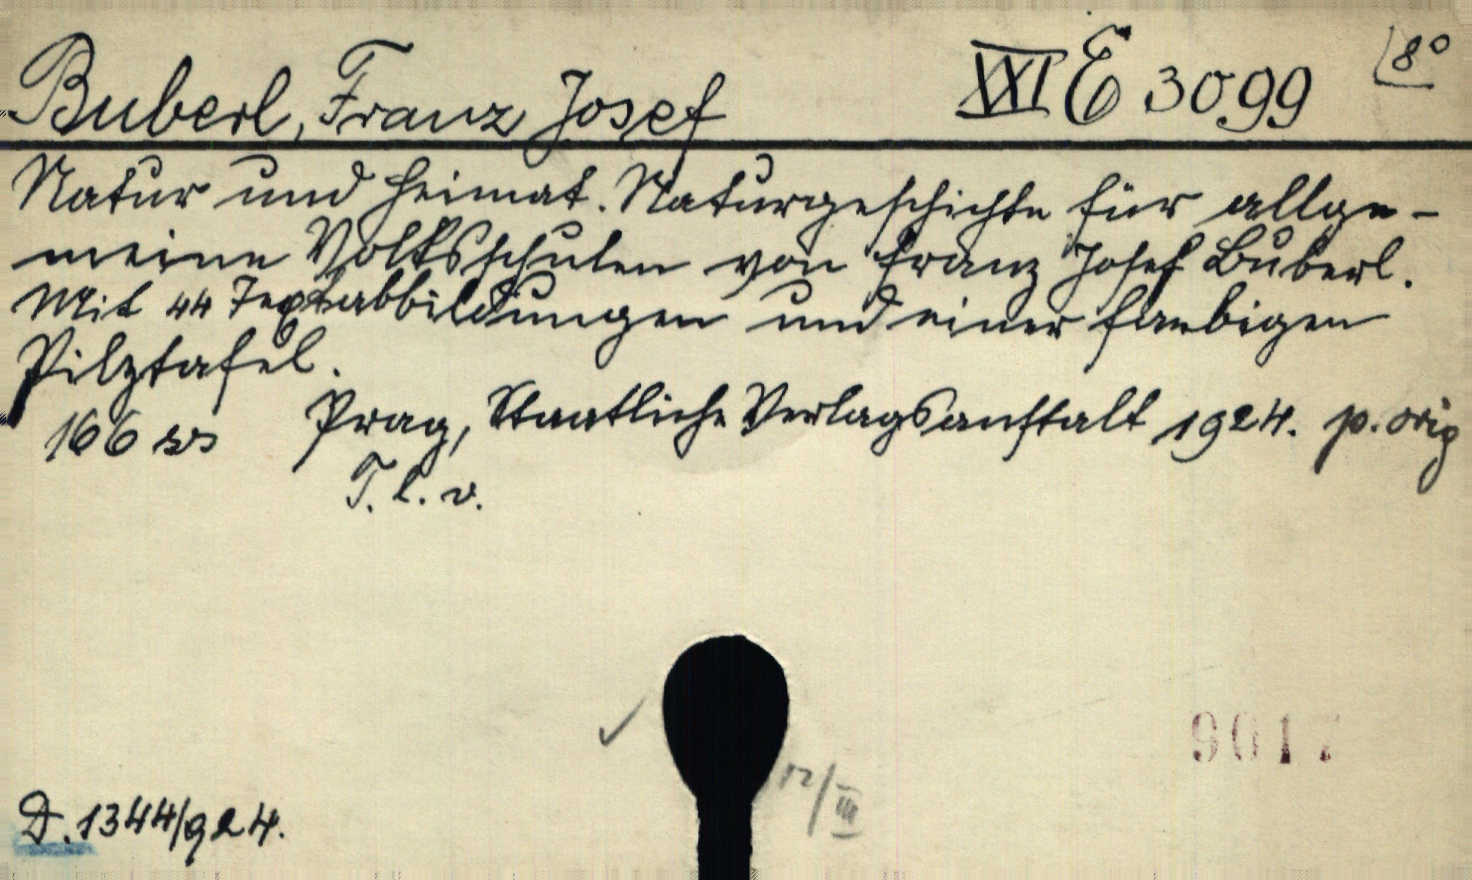 Buberl, Franz Josef XXI E 3099 8°
Natur und Heimat. Naturgeschichte für allge-
meine Volksschulen von Franz Josef Buberl.
Mit 44 Textabbildungen und einer farbigen
Pilztafel.
166 ss Prag, Staatliche Verlagsanstalt 1924. p. orig
T. l. v.
9017
12/III
D. 1344/924.